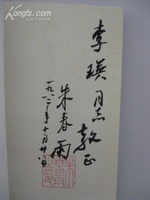 李瑛同志教正
朱春雨
一九八二年十月廿八日